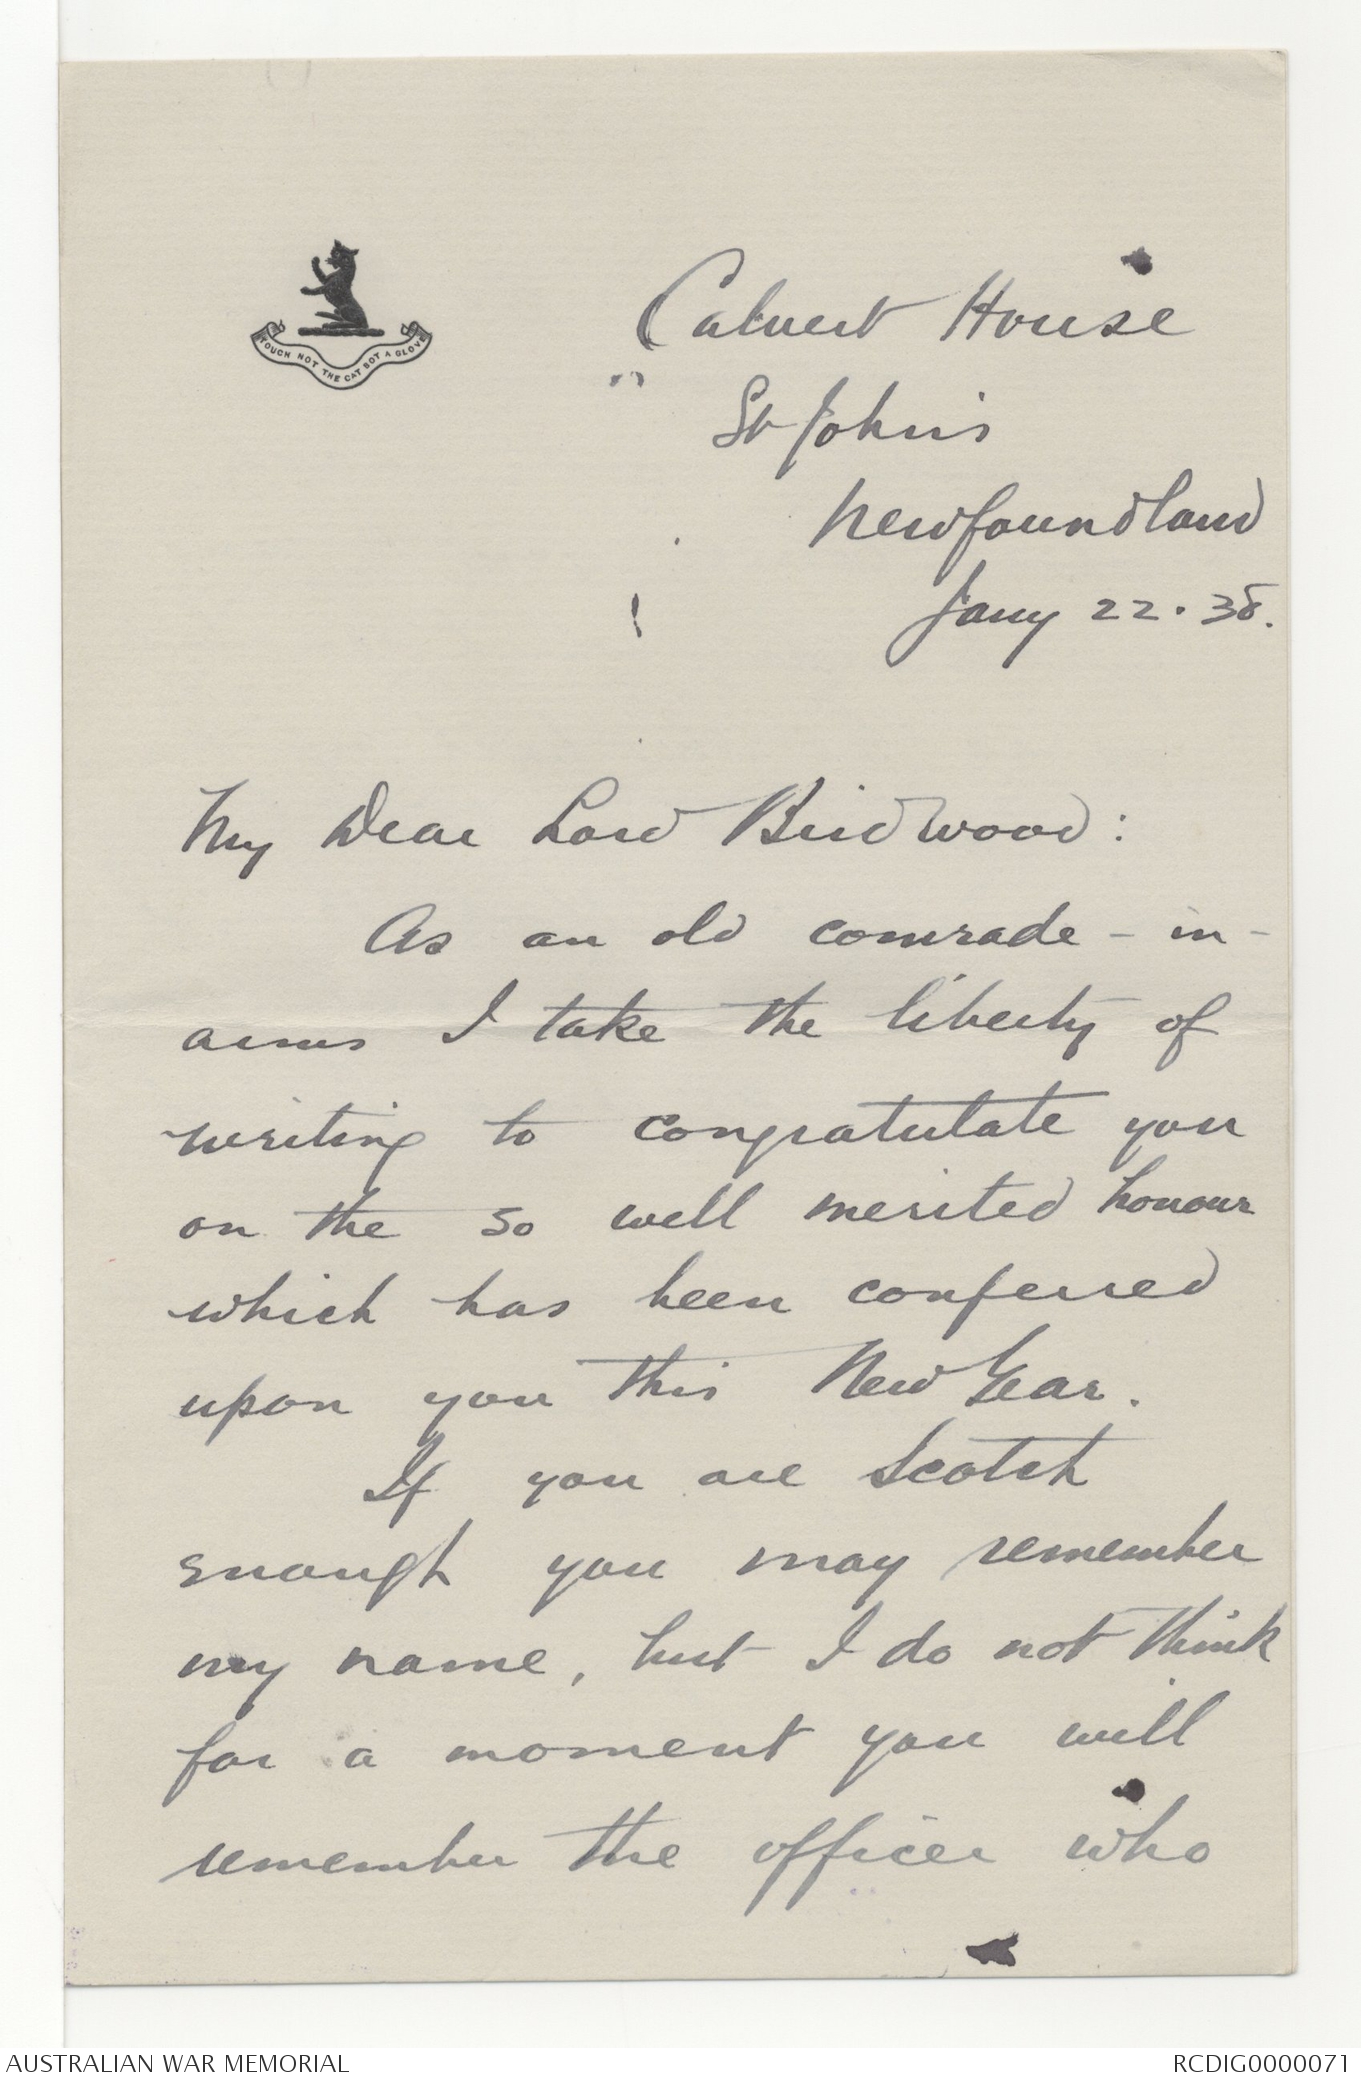 TOUCH NOT THE CAT BOT A GLOVE
Calvert House
St John's
Newfoundland
Jany 22. 38.
My Dear Lord Birdwood:
As an old comrade-in-
arms I take the liberty of
writing to congratulate you
on the so well merited honour
which has been conferred
upon you this New Year.
If you are Scotch
enough you may remember
my name, but I do not think
for a moment you will
remember the officer who
AUSTRALIAN WAR MEMORIAL
RCDIG0000071